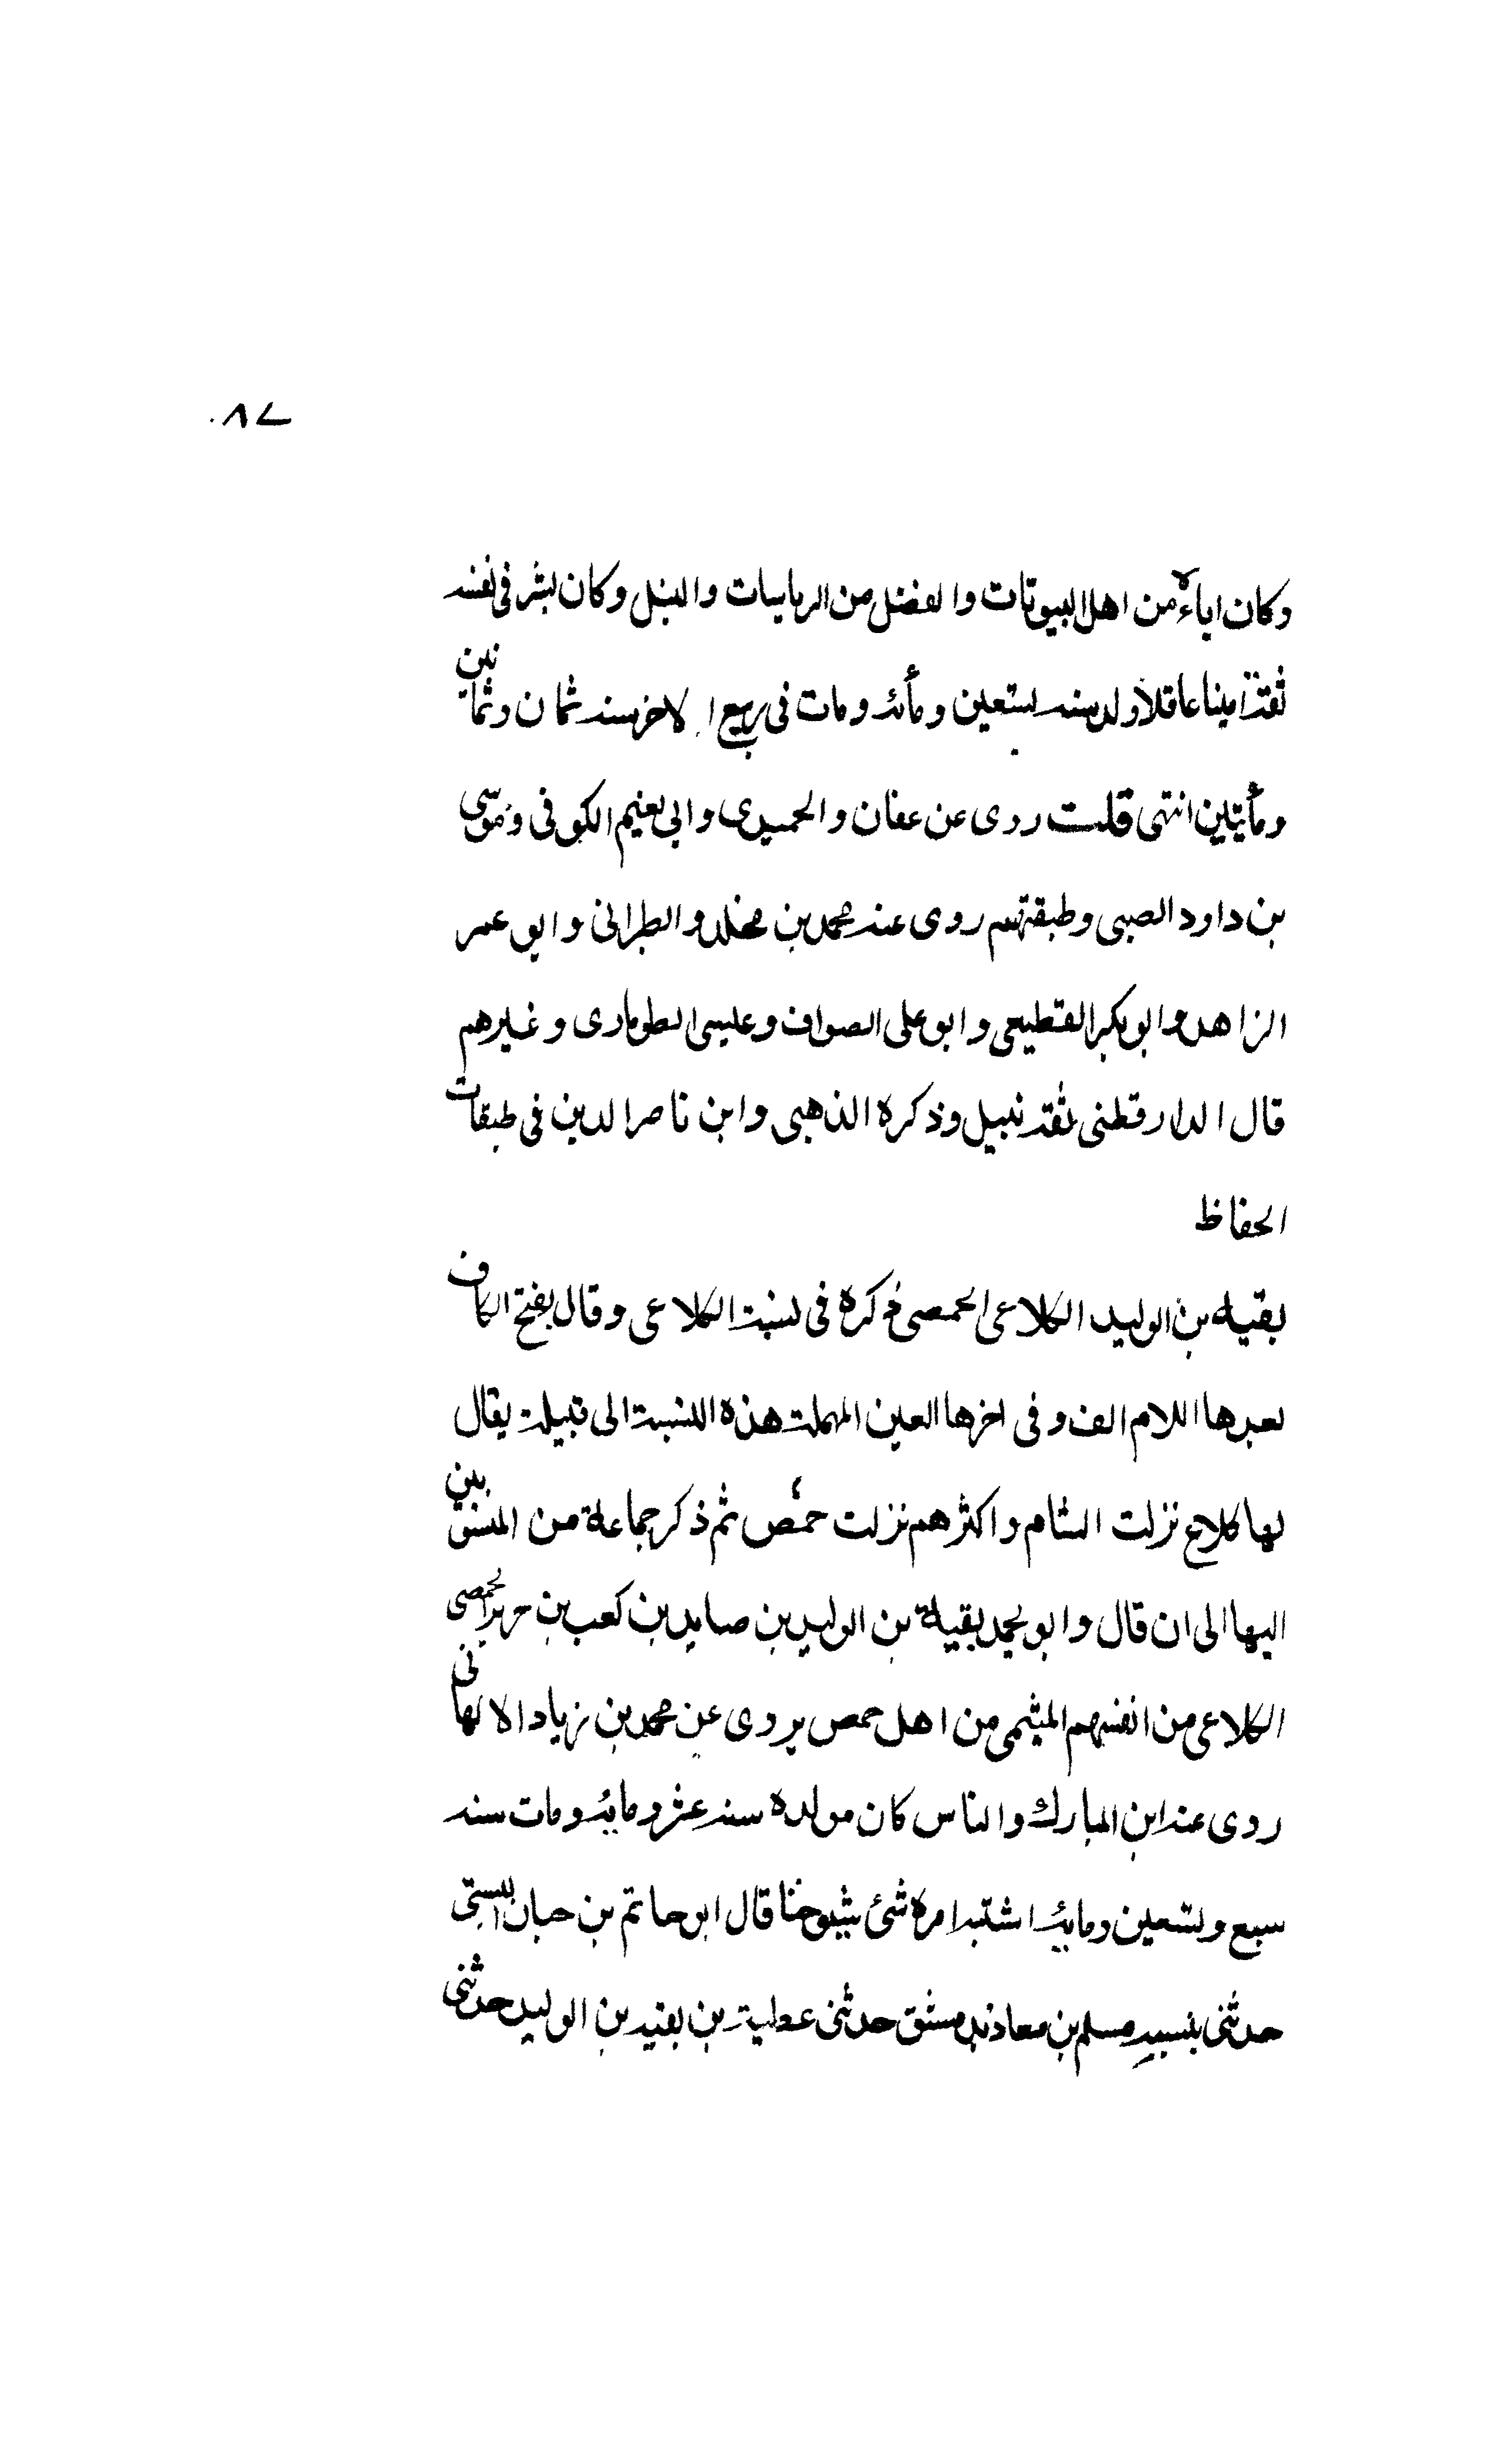 ٨٧
وكان اباءه من اهل البيوتات والفضل من الرياسات والنبل وكان بشر فى نفسه
ثقة امينا عاقلا ولد سنه تسعين ومأئه ومات فى ربيع الاخر سنه ثمان وثمانين
ومأيتين انتهى قلت روى عن عفان والحميدى وابى نعيم الكوفى وموسى
بن داود الضبى وطبقتهم روى عنه محمد بن مخلد والطبرانى وابو عمر
الزاهد وابو بكر القطيعى وابو على الصواف وعيسى الطومارى وغيرهم
قال الدارقطنى ثقه نبيل وذكره الذهبى وابن ناصر الدين فى طبقات
الحفاظ
بقية بن الوليد الكلاعى الحمصى ذكره فى نسبة الكلاعى وقال بفتح الكاف
بعدها اللام الف وفى اخرها العين المهملة هذه النسبة الى قبيلة يقال
لها كلاع نزلت الشام واكثرهم نزلت حمص ثم ذكر جماعة من المنتسبين
اليها الى ان قال وابو يحمد بقية بن الوليد بن صايد بن كعب بن حريز الحمصى
الكلاعى من انفسهم الميثمى من اهل حمص يروى عن محمد بن زياد الالهانى
روى عنه ابن المبارك والناس كان مولده سنه عشر ومايه ومات سنه
سبع وتسعين ومايه اشتبه امره شئ بشيوخنا قال ابو حاتم بن حبان البستى
حدثنى بنسبه مسلم بن معاذ بدمشق حدثنى عطية بن بقيه بن الوليد حدثنى